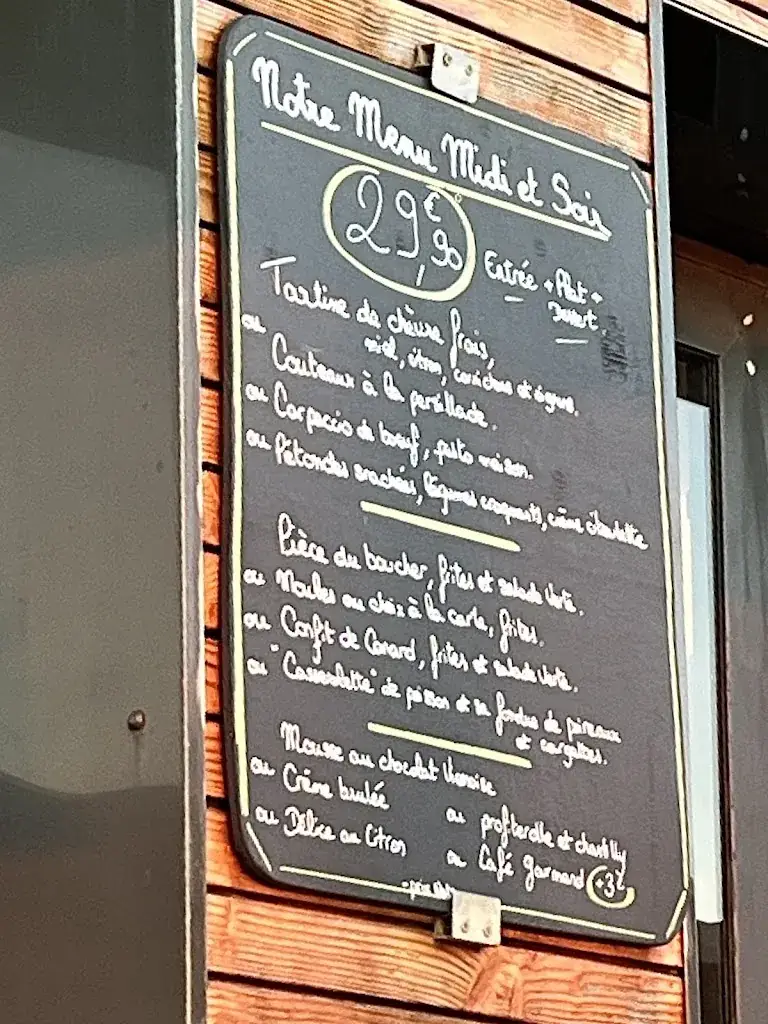 Notre Menu Midi et Soir
29,90 €
Entrée + Plat +
Dessert.
Tartine de chèvre frais,
miel, citron, cornichons et
ou Couteaux à la persillade.
ou Carpaccio de boeuf, pesto maison.
ou Pétoncles snackées, légumes croquants, crème ciboulette
Pièce du boucher, frites et salade verte.
ou Moules au choix à la carte, frites.
ou Confit de Canard, frites et salade verte.
ou "Cassolette" de poisson et sa fondue de poireaux
et
Mousse au chocolat
ou Crème brulée
ou profiterolle et chantilly
ou Délice au Citron
ou Café gourmand +3€